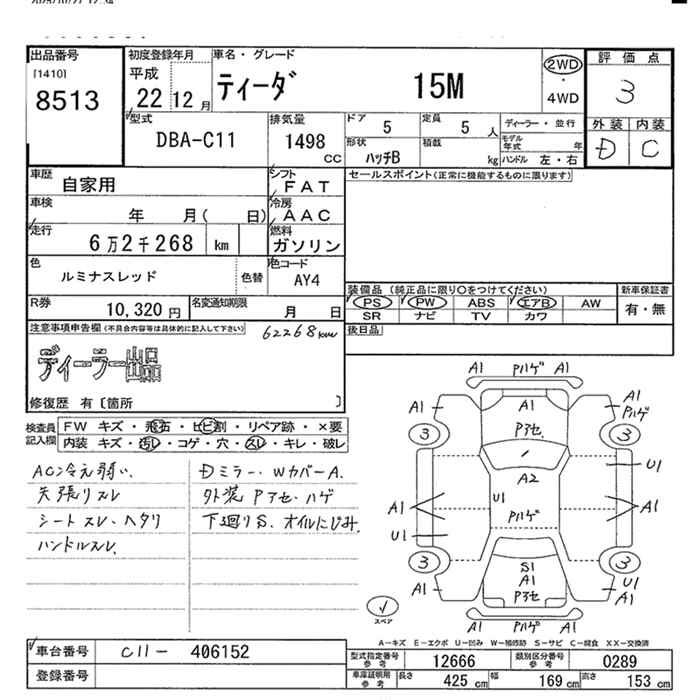 出品番号
[1410]
8513
初度登録年月
平成
22 12 月
車名・グレード
ティーダ 15M
2WD
・
4WD
評価点
3
外装 内装
D C
型式
DBA-C11
排気量
1498
CC
ドア
5
定員
5 人
形状
ハッチB
積載
kg
ディーラー・並行
モデル年式 年
ハンドル 左・右
車歴
自家用
シフト
FAT
車検
年 月( 日)
冷房
AAC
走行
6万2千268 km
燃料
ガソリン
色
ルミナスレッド
色替
色コード
AY4
R券
10,320 円
名変通知期限
月 日
セールスポイント(正常に機能するものに限ります)
装備品 (純正品に限り○をつけてください)
PS PW ABS エアB AW
SR ナビ TV カワ
新車保証書
有・無
後日品
注意事項申告欄(不具合内容等は具体的に記入して下さい)
62268km
ディーラー出品
修復歴 有〔箇所 〕
検査員記入欄
FW キズ・飛石・ヒビ割・リペア跡・×要
内装 キズ・汚レ・コゲ・穴・スレ・キレ・破レ
AC冷え弱い.
天張りスレ
シートスレ、ヘタリ
ハンドルスレ
Dミラー.WカバーA.
外装Pアセ.ハゲ
下廻りS.オイルにじみ.
A1 Pハゲ A1
A1
A1
A1
Pハゲ
Pアセ.
3
3
A2
U1
U1
A1
Pハゲ
A1
U1
3
3
S1
A1
Pアセ
A1
U1
A1
A1 Pハゲ A1
スペア
A-キズ E-エクボ U-凹み W-補修跡 S-サビ C-腐食 XX-交換済
車台番号
C11- 406152
登録番号
型式指定番号
参考
12666
類別区分番号
参考
0289
車庫証明用
参考
長さ 425 cm
幅 169 cm
高さ 153 cm